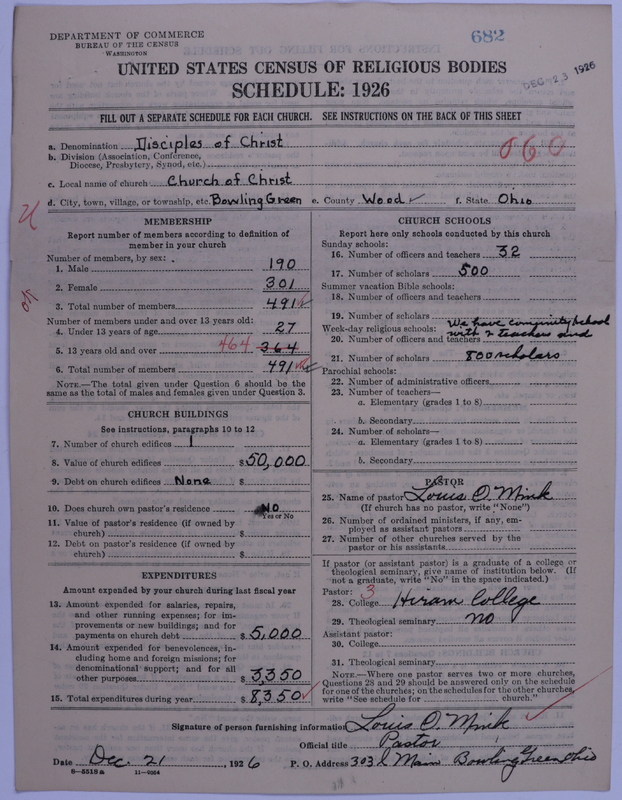 DEPARTMENT OF COMMERCE
BUREAU OF THE CENSUS
WASHINGTON
682
DEC 23 1926
UNITED STATES CENSUS OF RELIGIOUS BODIES
SCHEDULE: 1926
FILL OUT A SEPARATE SCHEDULE FOR EACH CHURCH. SEE INSTRUCTIONS ON THE BACK OF THIS SHEET
a. Denomination Disciples of Christ
060
b. Division (Association, Conference,
Diocese, Presbytery, Synod, etc.)
c. Local name of church Church of Christ
d. City, town, village, or township, etc. Bowling Green e. County Wood ✓ f. State Ohio
MEMBERSHIP
Report number of members according to definition of
member in your church
Number of members, by sex:
1. Male 190
2. Female 301
3. Total number of members 491 ✓
Number of members under and over 13 years old:
4. Under 13 years of age 27
5. 13 years old and over 464 364
6. Total number of members 491 ✓
NOTE.—The total given under Question 6 should be the
same as the total of males and females given under Question 3.
CHURCH BUILDINGS
See instructions, paragraphs 10 to 12
7. Number of church edifices 1
8. Value of church edifices $50,000
9. Debt on church edifices None $
10. Does church own pastor's residence No
Yes or No
11. Value of pastor's residence (if owned by
church) $
12. Debt on pastor's residence (if owned by
church) $
EXPENDITURES
Amount expended by your church during last fiscal year
13. Amount expended for salaries, repairs,
and other running expenses; for im-
provements or new buildings; and for
payments on church debt $5,000
14. Amount expended for benevolences, in-
cluding home and foreign missions; for
denominational support; and for all
other purposes $3,350
15. Total expenditures during year $8,350 ✓
CHURCH SCHOOLS
Report here only schools conducted by this church
Sunday schools:
16. Number of officers and teachers 32
17. Number of scholars 500
Summer vacation Bible schools:
18. Number of officers and teachers
19. Number of scholars
Week-day religious schools: We have community school
20. Number of officers and teachers with 2 teachers and
21. Number of scholars 800 scholars
Parochial schools:
22. Number of administrative officers
23. Number of teachers—
a. Elementary (grades 1 to 8)
b. Secondary
24. Number of scholars—
a. Elementary (grades 1 to 8)
b. Secondary
PASTOR
25. Name of pastor Louis O. Mink
(If church has no pastor, write "None")
26. Number of ordained ministers, if any, em-
ployed as assistant pastors
27. Number of other churches served by the
pastor or his assistants
If pastor (or assistant pastor) is a graduate of a college or
theological seminary, give name of institution below. (If
not a graduate, write "No" in the space indicated.)
Pastor: 3
28. College Hiram College
29. Theological seminary no
Assistant pastor:
30. College
31. Theological seminary
NOTE.—Where one pastor serves two or more churches,
Questions 28 and 29 should be answered only on the schedule
for one of the churches; on the schedules for the other churches,
write "See schedule for church."
Signature of person furnishing information Louis O. Mink
Official title Pastor
Date Dec. 21, 1926 P. O. Address 303 S Main Bowling Green Ohio
8—5518 a 11—9264